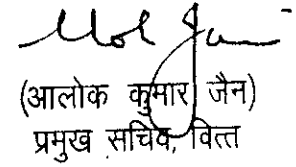 (आलोक कुमार जैन)
प्रमुख सचिव, वित्त